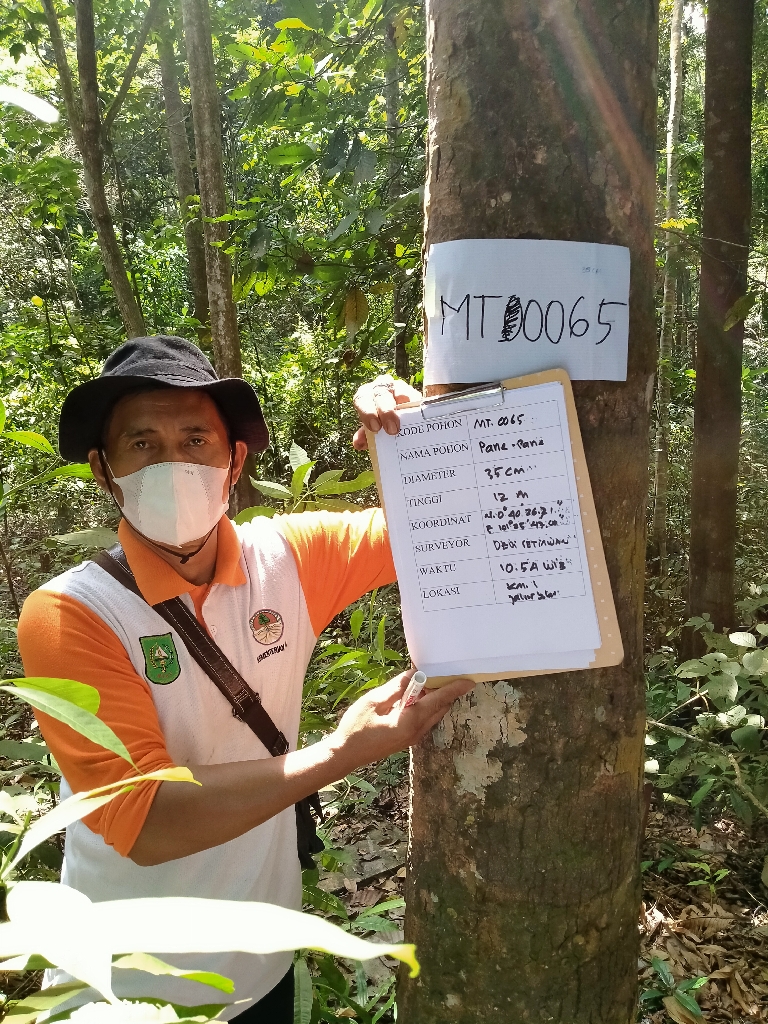 MT00065
KODE POHON MT. 0065
NAMA POHON Pane-Pane
DIAMETER 35 CM
TINGGI 12 M
KOORDINAT N. 0° 40' 26.71"
E 101° 35'
SURVEYOR DEDI SETIAWAN
WAKTU 10.54 WIB
LOKASI KM. 1